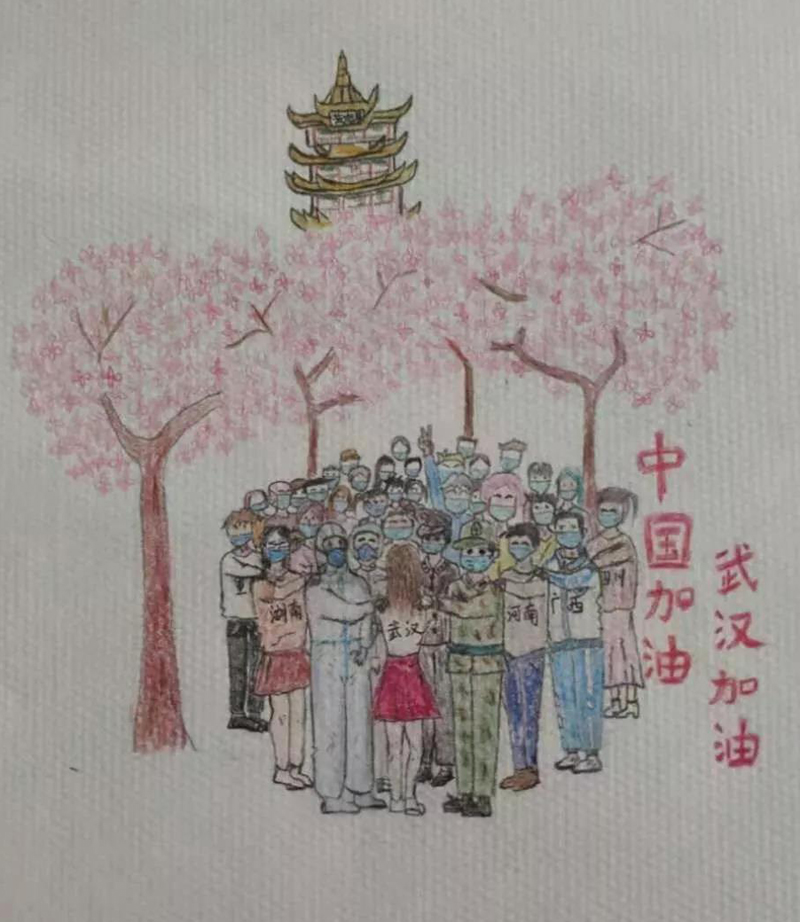 湖南
武汉
河南
广西
中国加油
武汉加油